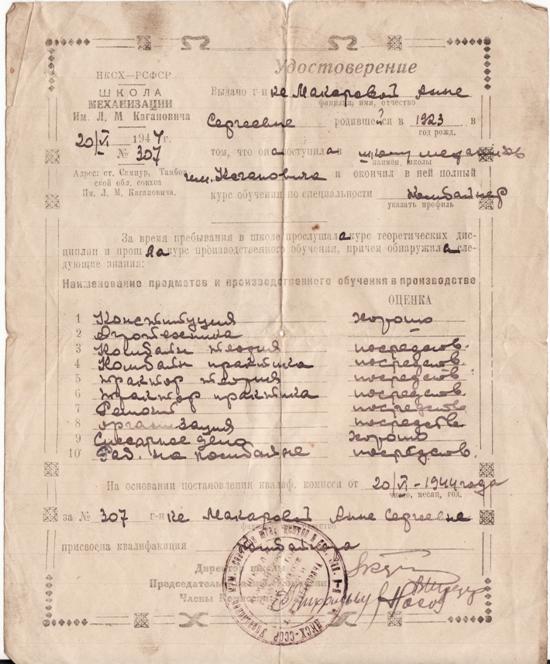 НКСХ—РСФСР
ШКОЛА
МЕХАНИЗАЦИИ
Им. Л. М Кагановича
20/VI 1944 г.
№ 307
Адрес: ст. Сампур, Тамбов-
ской обл. совхоз
Им. Л. М. Кагановича.
Удостоверение
Выдано г-н ке Макаровой Анне
фамилия, имя, отчество
Сергеевне родившейся в 1923 в
год рожд.
том, что она поступила в школу механизов
наимен. школы
им. Кагановича и окончил в ней полный
курс обучения по специальности Комбайнер
указать профиль
За время пребывания в школе прослушала курс теоретических дис-
циплин и прошла курс производственного обучения, причем обнаружила сле-
дующие знания:
Наименование предметов и производственного обучения в производстве
ОЦЕНКА
1 Конституция хорошо
2 Агротехника
3 Комбайн теория посредсов.
4 Комбайн практика посредсов.
5 трактор теория посредсов.
6 трактор практика посредсов.
7 Ремонт посредство
8 организация посредстве
9 Слесарное дело хорошо
10 Раб. на комбайне посредсов.
На основании постановления квалиф. комиссии от 20/VI-1944 года
число, месяц, год.
за № 307 г-н ке Макаровой Анне Сергеевне
присвоена квалификация Комбайнера
Директор школы
Председатель
Члены